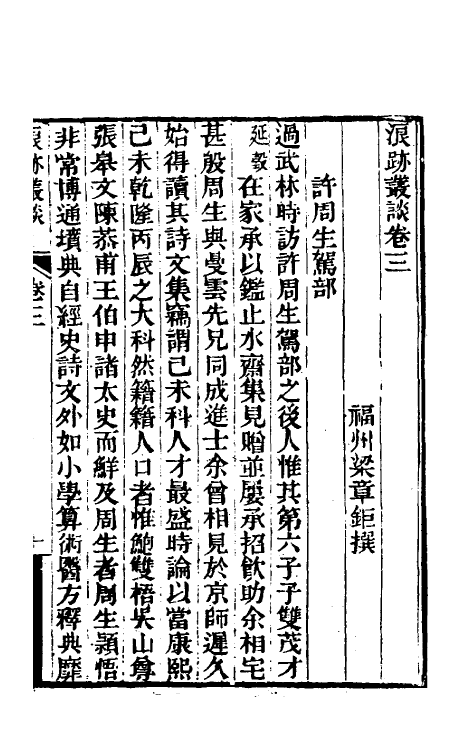 浪跡叢談卷三
福州梁章鉅撰
許周生駕部
過武林時訪許周生駕部之後人惟其第六子子雙茂才
延敬在家承以鑑止水齋集見贈並屢承招飲助余相宅
甚殷周生與曼雲先兄同成進士余曾相見於京師遲久
始得讀其詩文集竊謂己未科人才最盛時論以當康熙
己未乾隆丙辰之大科然籍籍人口者惟鮑雙梧吳山尊
張皋文陳恭甫王伯申諸太史而鮮及周生者周生頴悟
非常博通墳典自經史詩文外如小學算術醫方釋典靡
浪跡叢談
卷三
一